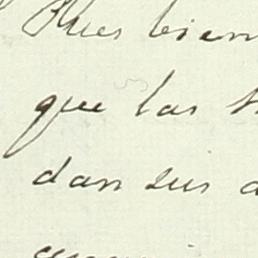 Pues bien
que las
dan sus a